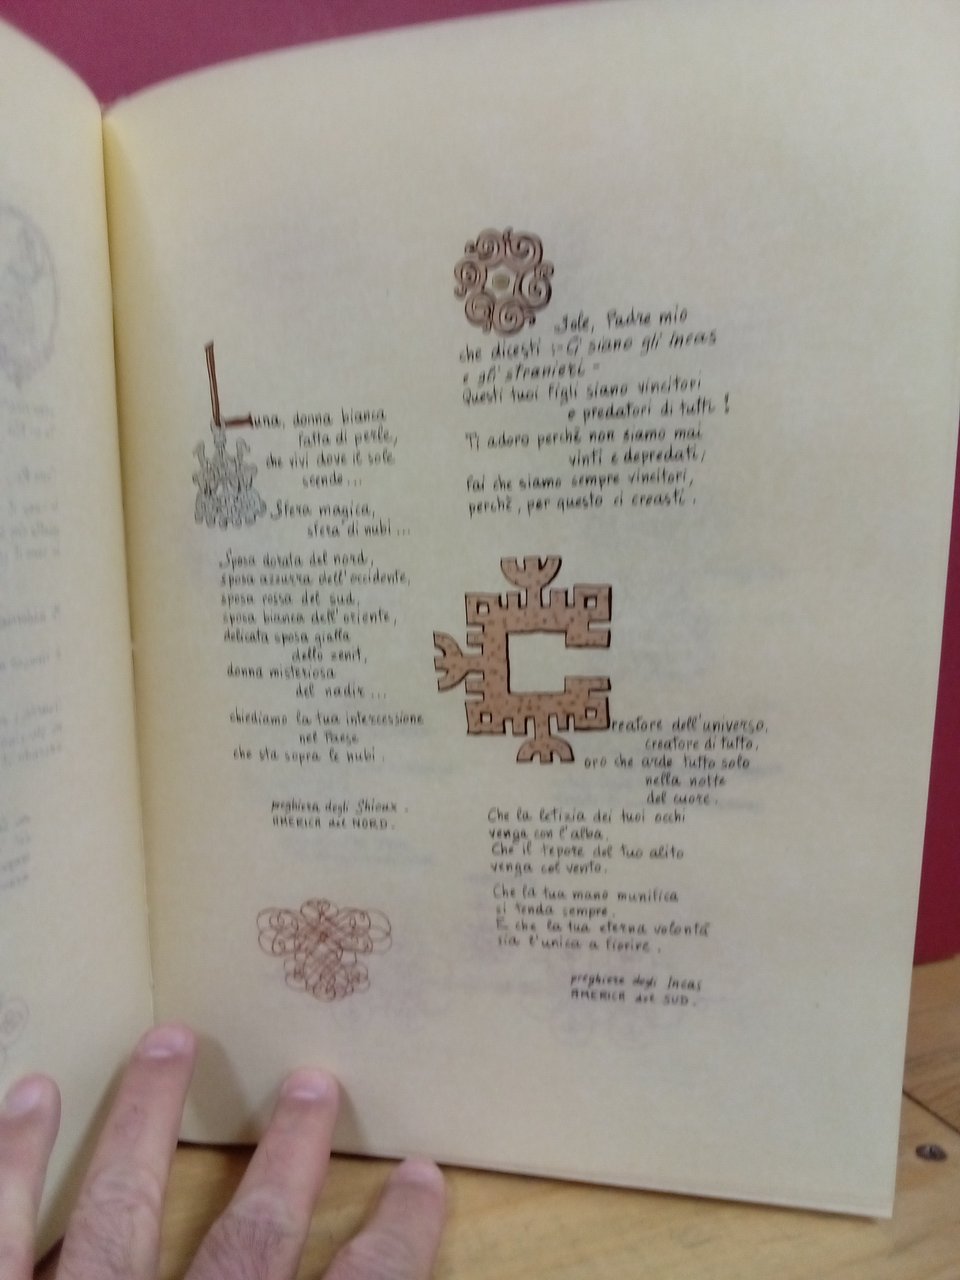 Luna, donna bianca
fatta di perle,
che vivi dove il sole
scende...
Sfera magica,
sfera di nubi...
Sposa dorata del nord,
sposa azzurra dell'occidente,
sposa rossa del sud,
sposa bianca dell'oriente,
delicata sposa gialla
dello zenit,
donna misteriosa
del nadir...
chiediamo la tua intercessione
nel Paese
che sta sopra le nubi.
preghiera degli Shioux.
AMERICA del NORD.
Sole, Padre mio
che dicesti :- Ci siano gli Incas
e gli stranieri -
Questi tuoi figli siano vincitori
e predatori di tutti!
Ti adoro perchè non siamo mai
vinti e depredati;
fai che siamo sempre vincitori,
perchè, per questo ci creasti.
Creatore dell'universo,
creatore di tutto,
oro che arde tutto solo
nella notte
del cuore.
Che la letizia dei tuoi occhi
venga con l'alba.
Che il tepore del tuo alito
venga col vento.
Che la tua mano munifica
si tenda sempre.
E che la tua eterna volontà
sia l'unica a fiorire.
preghiere degli Incas
AMERICA del SUD.